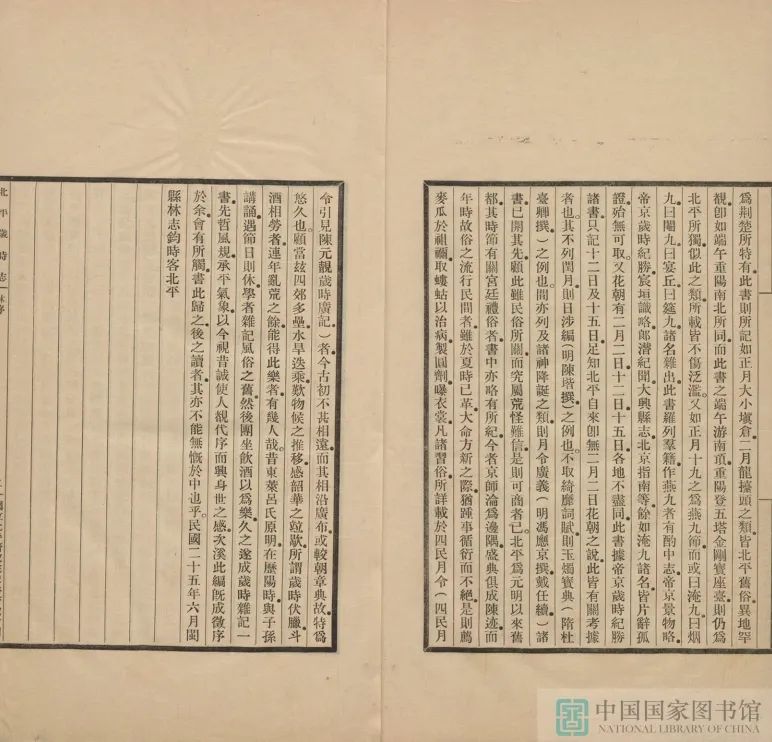 爲荆楚所特有此書則所記如正月大小塡倉二月龍擡頭之類皆北平舊俗異地罕
覩卽如端午重陽南北所同而此書之端午游南頂重陽登五塔金剛寶座臺則仍爲
北平所獨似此之類所載皆不傷泛濫又如正月十九之爲燕九節而或曰淹九曰烟
九曰閹九曰宴丘曰筵九諸名雜出此書羅列羣籍作燕九者有酌中志帝京景物略
帝京歲時紀勝宸垣識略郎潛紀聞大興縣志北京指南等餘如淹九諸名皆片辭孤
證殆無可取又花朝有二月二日十二日十五日各地不盡同此書據帝京歲時紀勝
諸書只記十二日及十五日足知北平自來卽無二月二日花朝之說此皆有關考據
者也其不列閏月則日涉編(明陳堦撰)之例也不取綺靡詞賦則玉燭寶典(隋杜
臺卿撰)之例也間亦列及諸神降誕之類則月令廣義(明馮應京撰戴任續)諸
書已開其先顧此雖民俗所關而究屬荒怪難信是則可商者已北平爲元明以來舊
都其時節有關宮廷禮俗者書中亦略有所紀今者京師淪爲邊隅盛典俱成陳迹而
年時故俗之流行民間者雖於夏時已革大命方新之際猶踵事循衍而不絕是則薦
麥瓜於祖禰取螻蛄以治病製圓劑曝衣裳凡諸習俗所詳載於四民月令(四民月
令引見陳元靚歲時廣記)者今古初不甚相遠而其相沿廣布或較朝章典故特爲
悠久也顧當玆四郊多壘水旱迭乘歎物候之推移感韶華之𨒪歇所謂歲時伏臘斗
酒相勞者連年亂荒之餘能得此樂者有幾人哉昔東萊呂氏原明在歷陽時與子孫
講誦遇節日則休學者雜記風俗之舊然後團坐飲酒以爲樂久之遂成歲時雜記一
書先哲風規承平氣象以今視昔誠使人覩代序而興身世之感次溪此編旣成徵序
於余會有所觸書此歸之後之讀者其亦不能無慨於中也乎民國二十五年六月閩
縣林志鈞時客北平
北平歲時志
林序
中国国家图书馆
NATIONAL LIBRARY OF CHINA